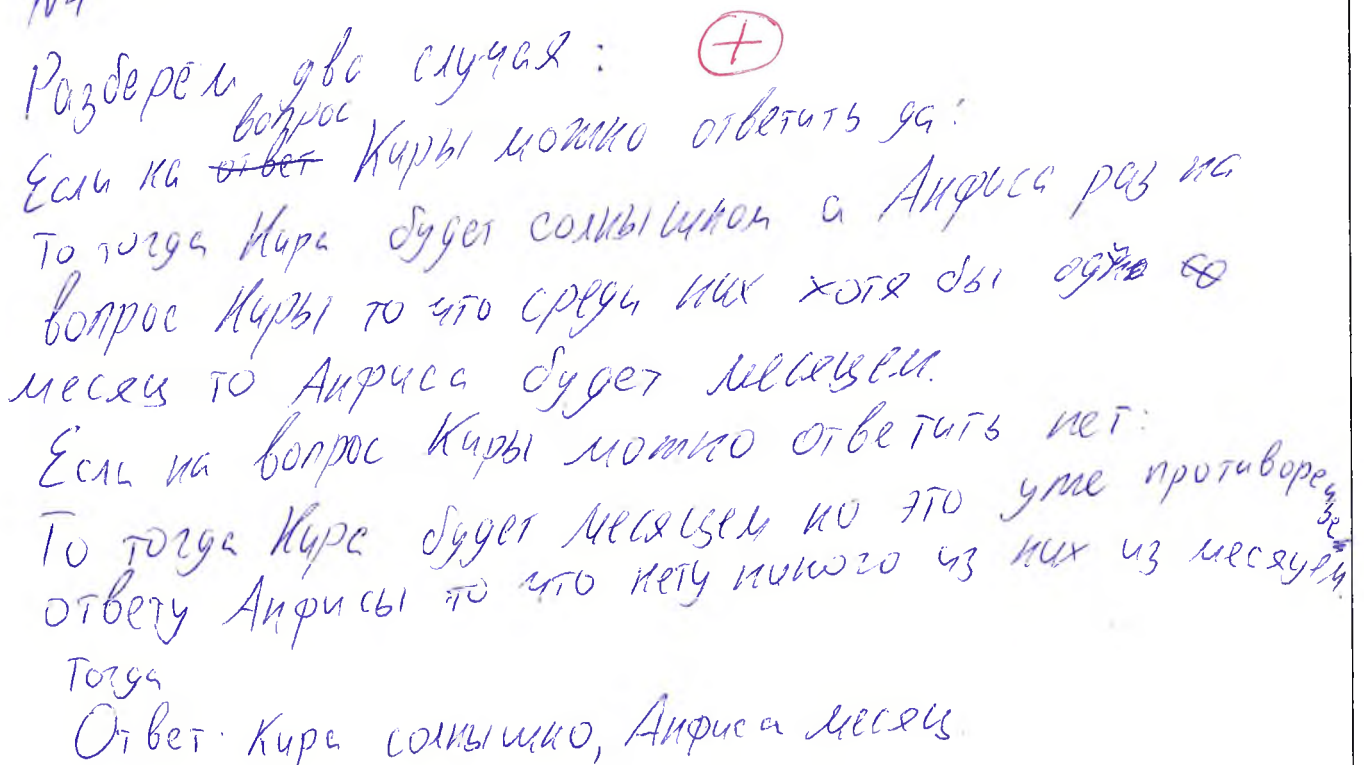 Разберём два случая: +
вопрос
Если на ответ Киры можно ответить да:
То тогда Кира будет солнышком а Анфиса раз на
вопрос Киры то что среди них хотя бы один
месяц то Анфиса будет месяцем.
Если на вопрос Киры можно ответить нет:
То тогда Кира будет месяцем но это уже противоре
ответу Анфисы то что нету никого из них из месяцем.
Тогда
Ответ: Кира солнышко, Анфиса месяц